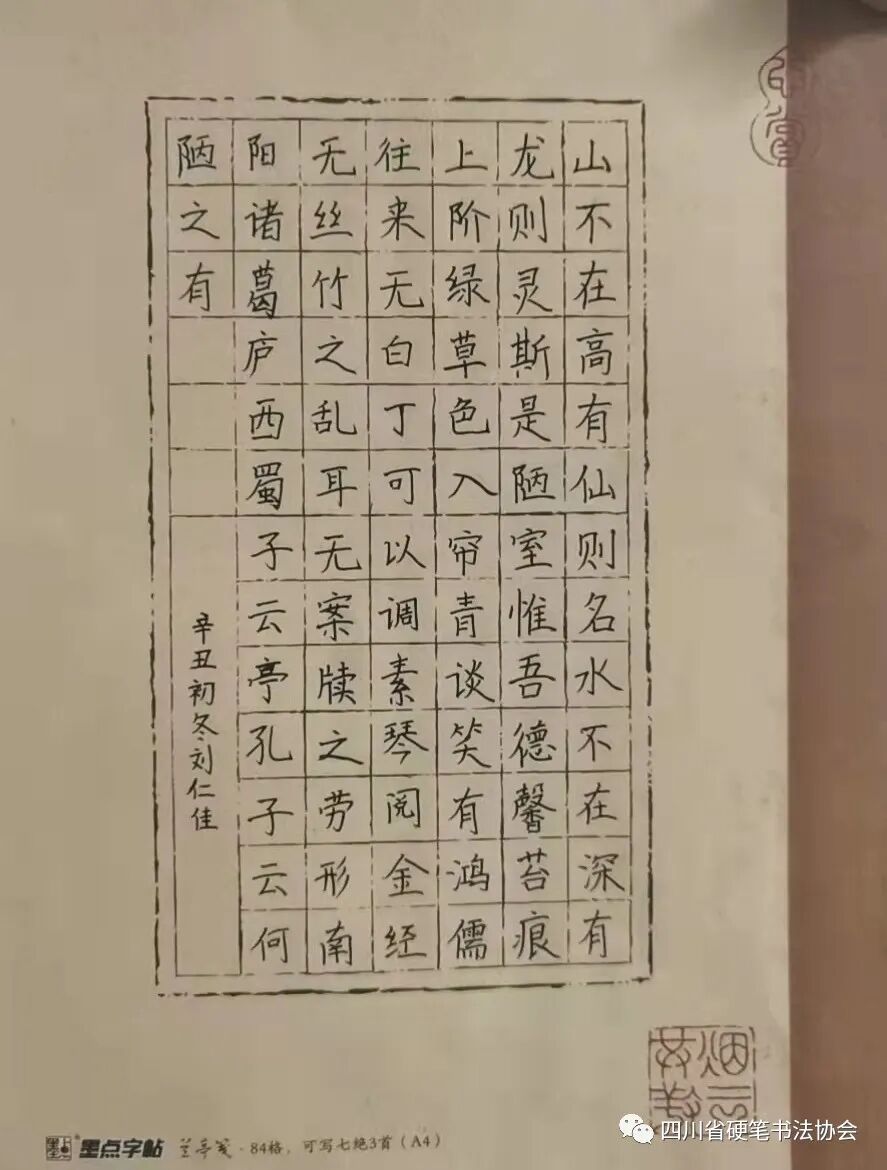 山不在高有仙则名水不在深有
龙则灵斯是陋室惟吾德馨苔痕
上阶绿草色入帘青谈笑有鸿儒
往来无白丁可以调素琴阅金经
无丝竹之乱耳无案牍之劳形南
阳诸葛庐西蜀子云亭孔子云何
陋之有
辛丑初冬刘仁佳
墨点字帖 兰亭笺·84格，可写七绝3首（A4）
四川省硬笔书法协会